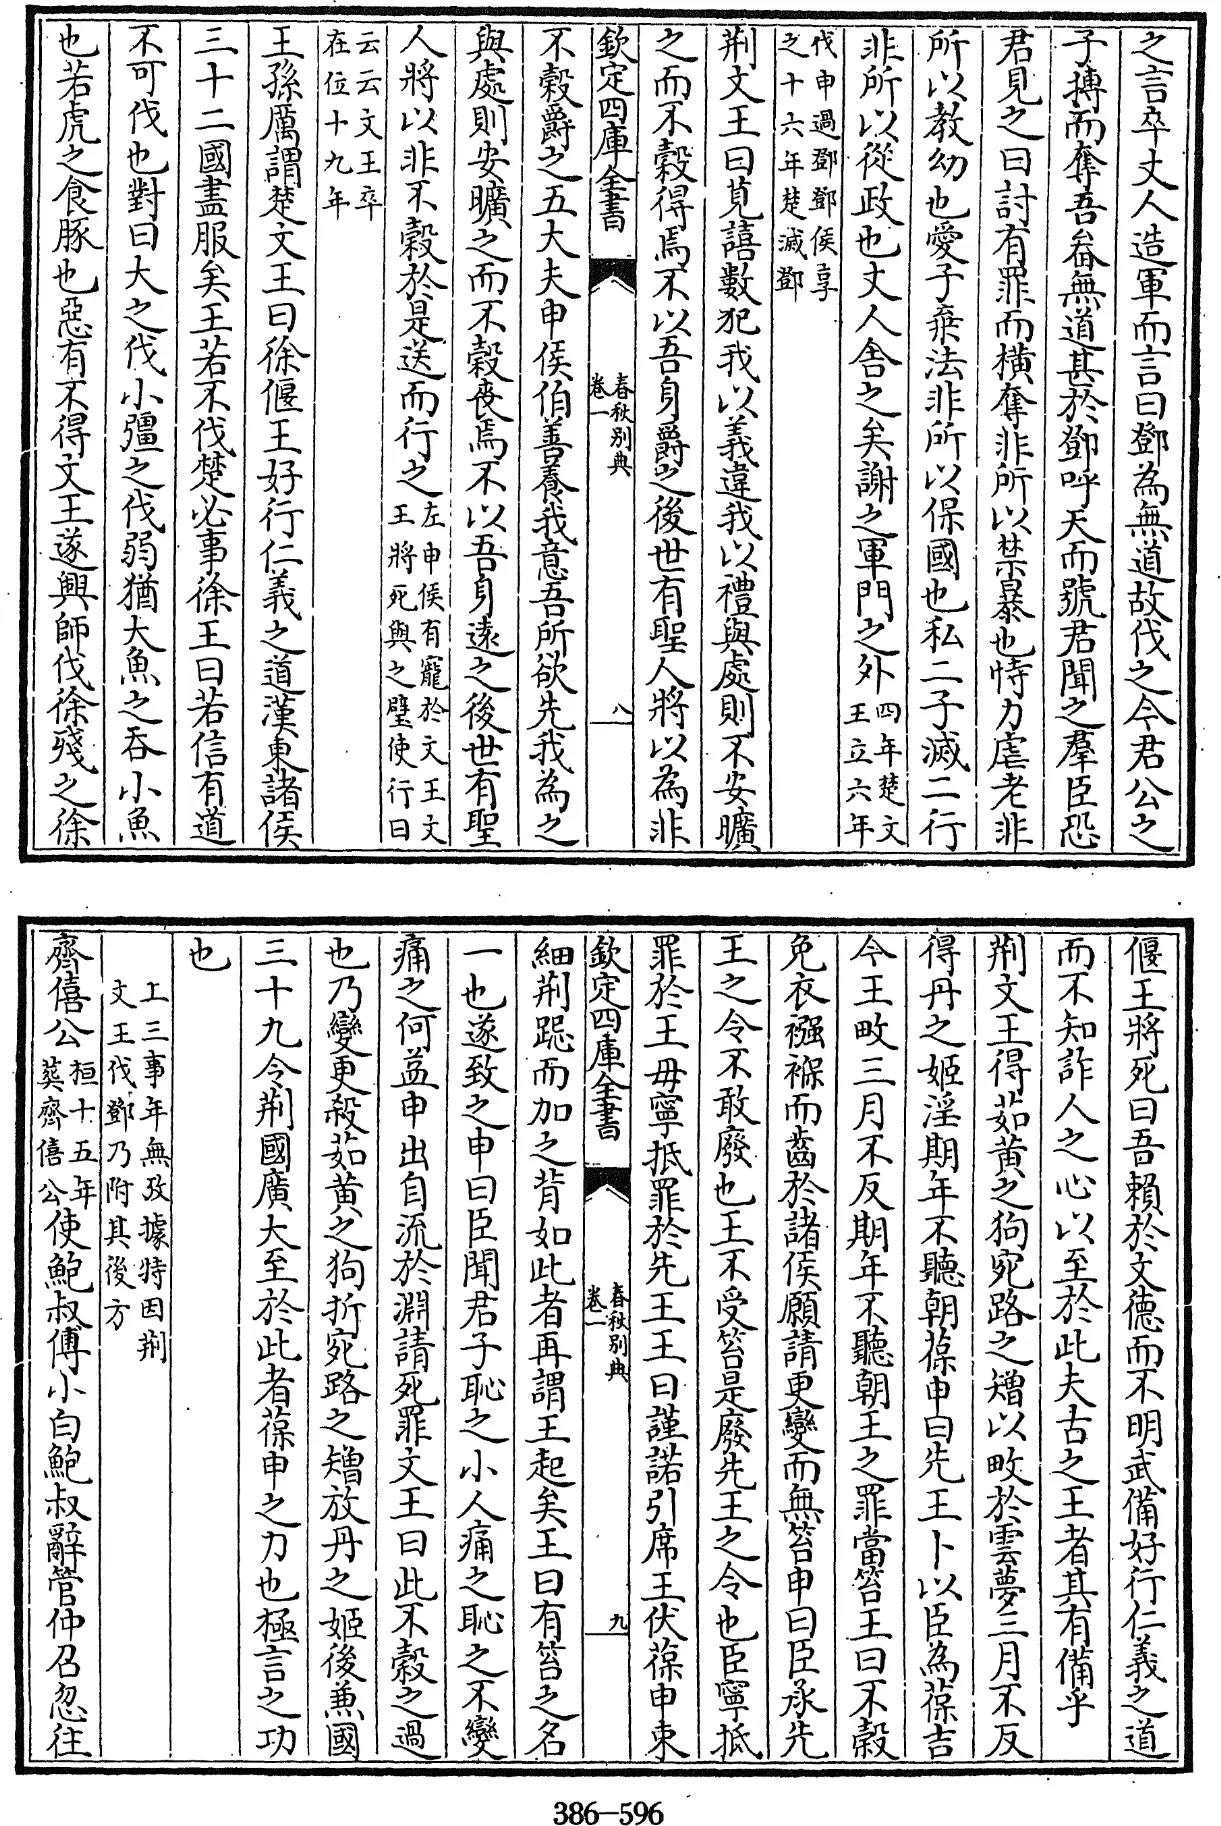 之言卒丈人造軍而言曰鄧為無道故伐之今君公之
子搏而奪吾畚無道甚於鄧呼天而號君聞之羣臣恐
君見之曰討有罪而橫奪非所以禁暴也恃力虐老非
所以教幼也愛子棄法非所以保國也私二子滅二行
非所以從政也丈人舍之矣謝之軍門之外四年楚文
王立六年
伐申過鄧鄧侯享
之十六年楚滅鄧
荆文王曰莧譆數犯我以義違我以禮與處則不安曠
之而不穀得焉不以吾身爵之後世有聖人將以為非
欽定四庫全書
春秋别典
卷一
八
不穀爵之五大夫申侯伯善養我意吾所欲先我為之
與處則安曠之而不穀喪焉不以吾身遠之後世有聖
人將以非不穀於是送而行之左申侯有寵於文王文
王將死與之璧使行曰
云云文王卒
在位十九年
王孫厲謂楚文王曰徐偃王好行仁義之道漢東諸侯
三十二國盡服矣王若不伐楚必事徐王曰若信有道
不可伐也對曰大之伐小彊之伐弱猶大魚之吞小魚
也若虎之食豚也惡有不得文王遂興師伐徐殘之徐
偃王將死曰吾賴於文德而不明武備好行仁義之道
而不知詐人之心以至於此夫古之王者其有備乎
荆文王得茹黄之狗宛路之矰以畋於雲夢三月不反
得丹之姬淫期年不聽朝葆申曰先王卜以臣為葆吉
今王畋三月不反期年不聽朝王之罪當笞王曰不穀
免衣襁褓而齒於諸侯願請更變而無笞申曰臣承先
王之令不敢廢也王不受笞是廢先王之令也臣寧抵
罪於王毋寧抵罪於先王王曰謹諾引席王伏葆申束
欽定四庫全書
春秋别典
卷一
九
細荆跽而加之背如此者再謂王起矣王曰有笞之名
一也遂致之申曰臣聞君子恥之小人痛之恥之不變
痛之何益申出自流於淵請死罪文王曰此不穀之過
也乃變更殺茹黄之狗折宛路之矰放丹之姬後兼國
三十九令荆國廣大至於此者葆申之力也極言之功
也
工三事年無攷據特因荆
文王伐鄧乃附其後方
齊僖公桓十五年
葬齊僖公使鮑叔傅小白鮑叔辭管仲召忽往
386—596